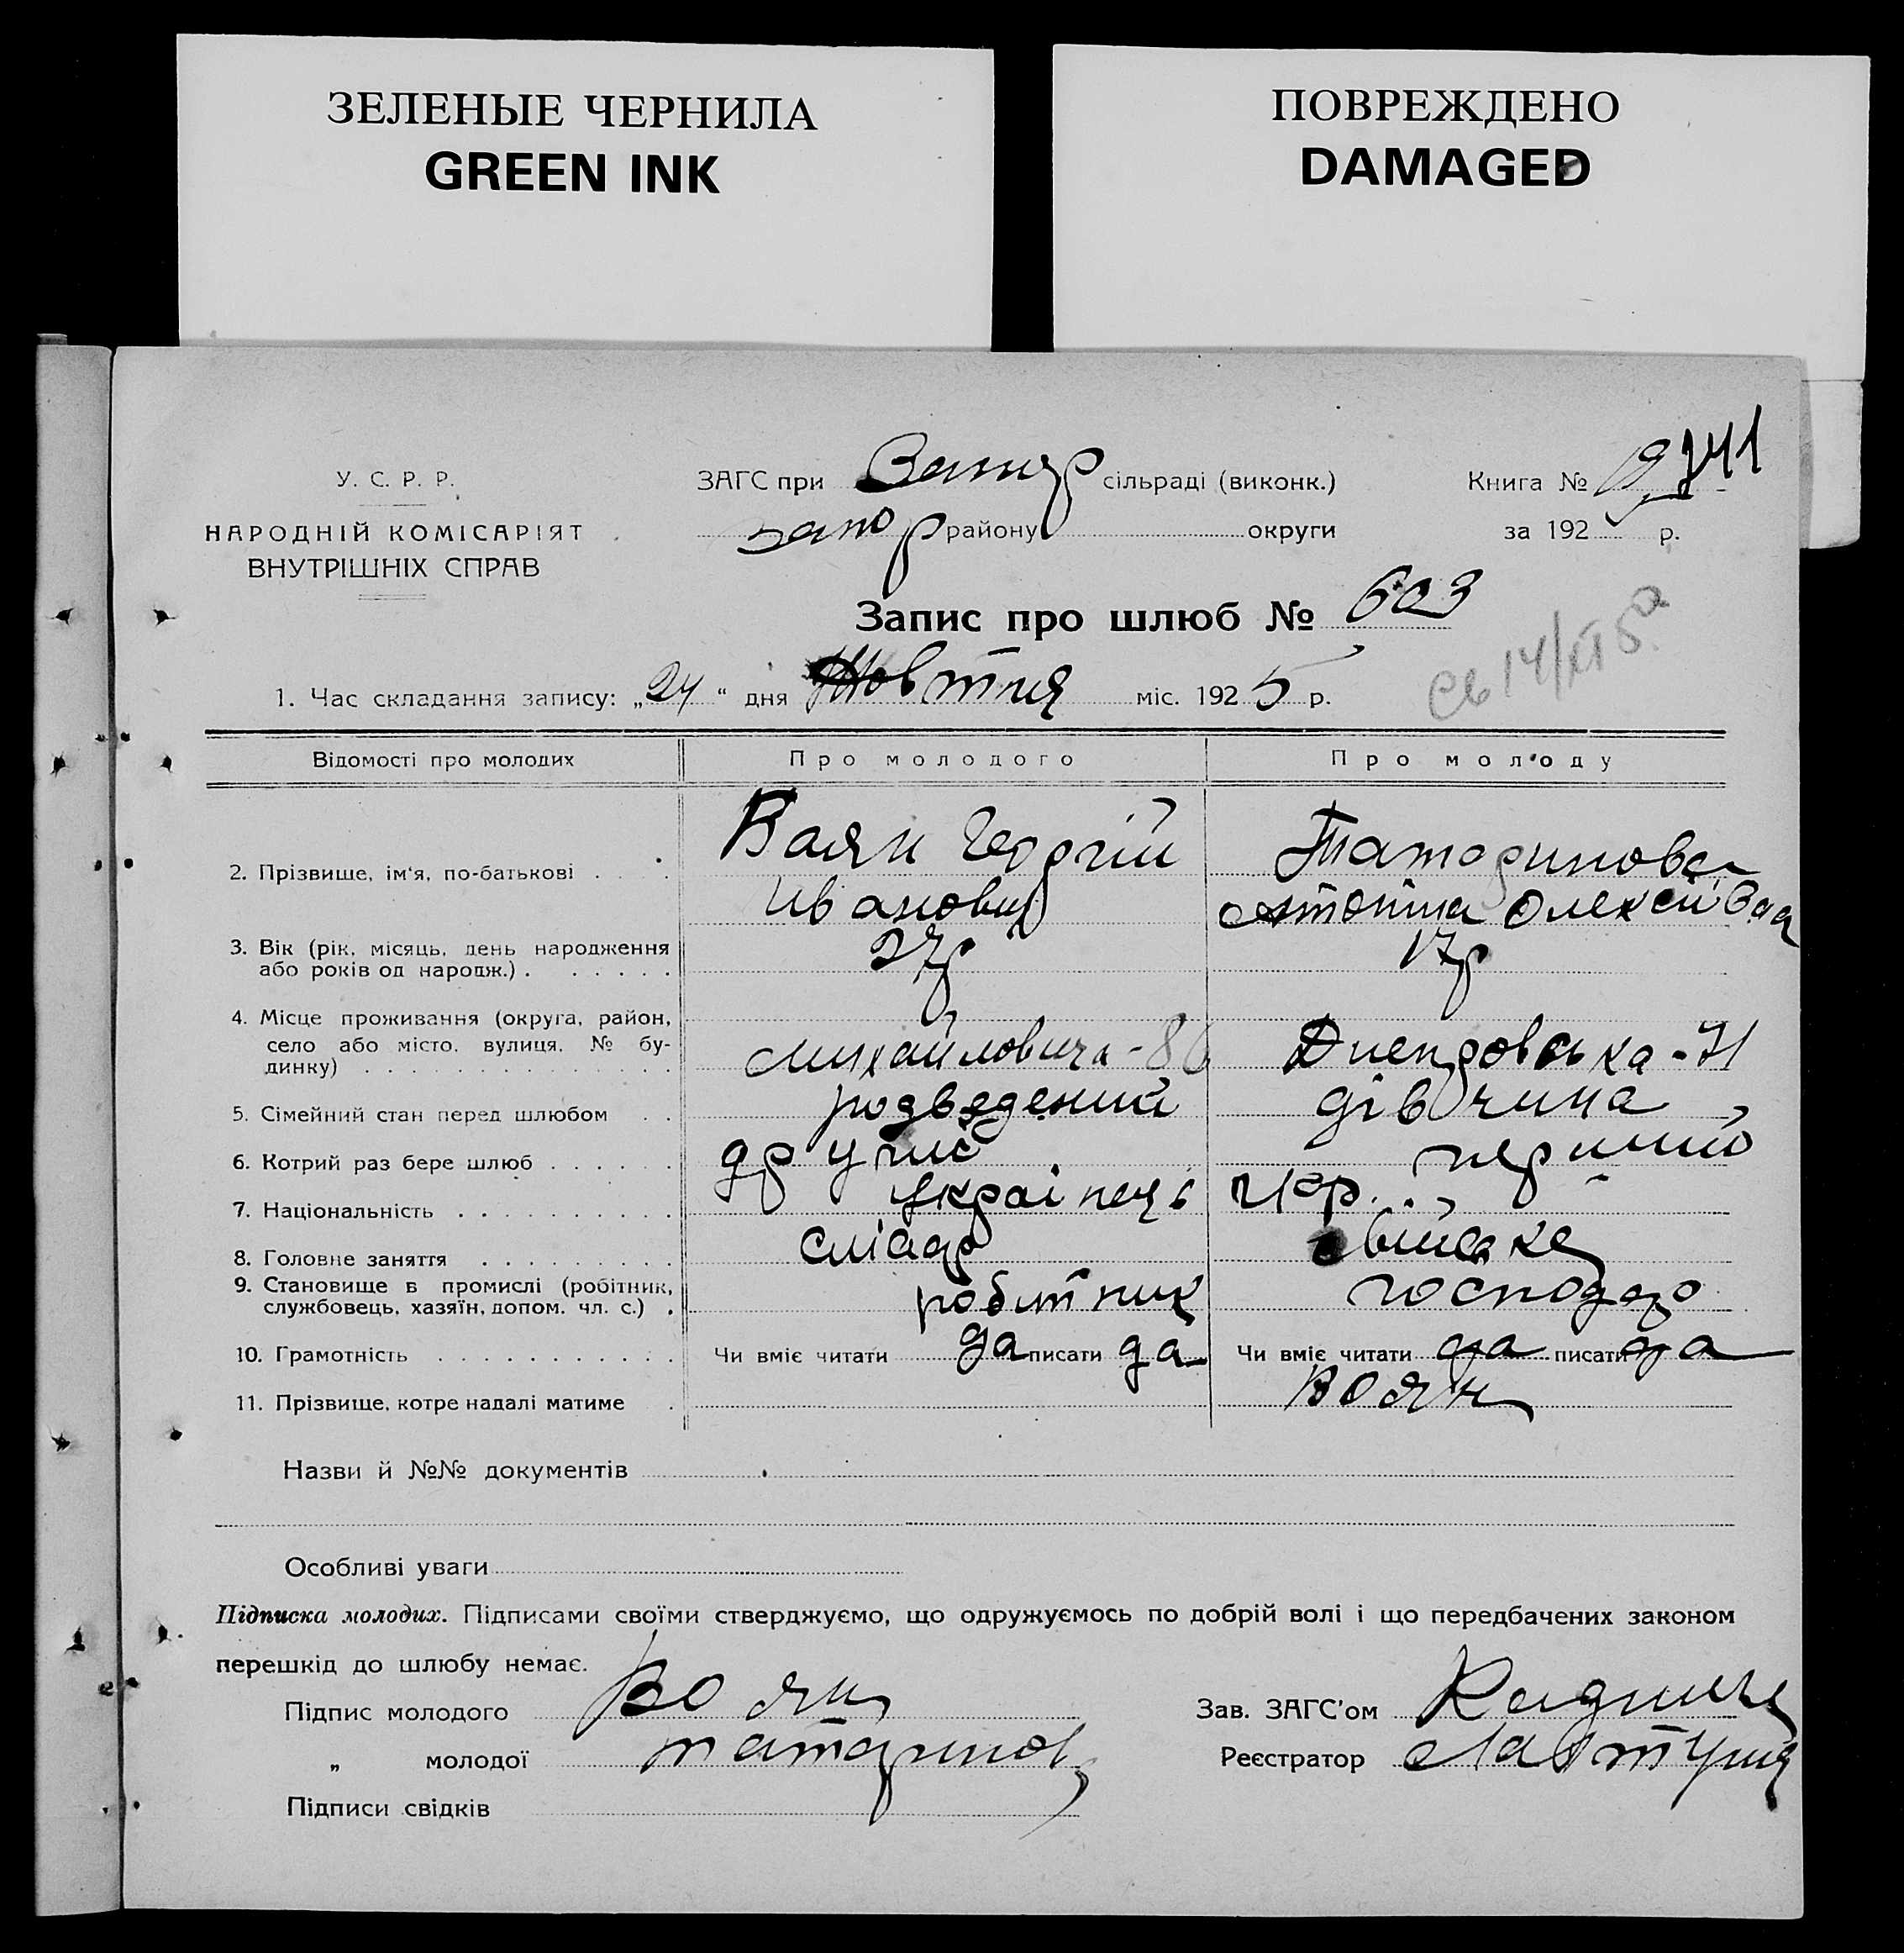 ЗЕЛЕНЫЕ ЧЕРНИЛА
GREEN INK
ПОВРЕЖДЕНО
DAMAGED
У. С. Р. Р.
НАРОДНІЙ КОМІСАРІЯТ
ВНУТРІШНІХ СПРАВ
ЗАГС при Запор сільраді (виконк.)
Запор району округи
Книга № 241
за 192 5 р.
Запис про шлюб № 603
1. Час складання запису: „24“ дня Жовтня міс. 1925 р.
Відомості про молодих Про молодого Про молоду
2. Прізвище, ім'я, по-батькові Ваян Георгій Татаринова
Иванович Антоніна Олексеивна
3. Вік (рік, місяць, день народження 27р 17р
або років од народж.)
4. Місце проживання (округа, район,
село або місто, вулиця, № бу- Михайловича-86 Днепровська-71
динку)
5. Сімейний стан перед шлюбом розведений дівчина
6. Котрий раз бере шлюб другий перший
7. Національність українець укр.
8. Головне заняття слюсар
9. Становище в промислі (робітник, робитник господар
службовець, хазяїн, допом. чл. с.)
10. Грамотність Чи вміє читати да писати да Чи вміє читати да писати да
11. Прізвище, котре надалі матиме Воян
Назви й №№ документів
Особливі уваги
Підписка молодих. Підписами своїми стверджуємо, що одружуємось по добрій волі і що передбачених законом
перешкід до шлюбу немає.
Підпис молодого Воян Зав. ЗАГС'ом
„ молодої Татаринова Реєстратор
Підписи свідків